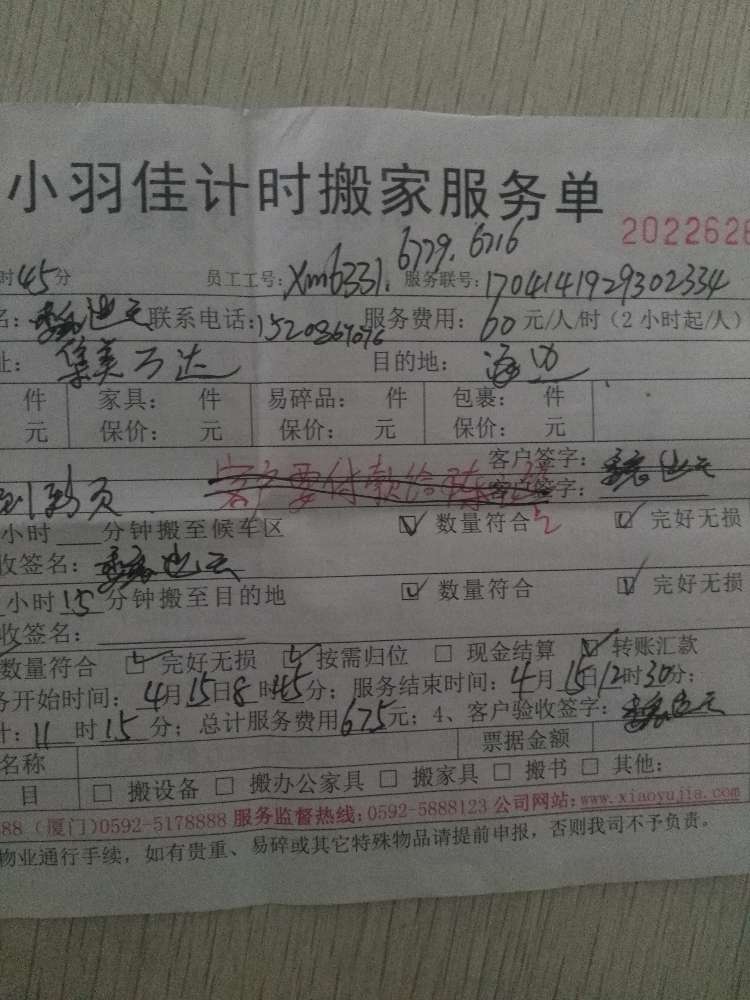 小羽佳计时搬家服务单
2022626
6729.6716
时45分 员工工号:xm6331. 服务联号:1704141929302334
名: 迪云 联系电话:1520367076 服务费用:60元/人/时(2小时起/人)
址:集美万达 目的地:海边
件 家具: 件 易碎品: 件 包裹: 件
元 保价: 元 保价: 元 保价: 元
客户签字:
客户要付款给 客户签字:
小时 分钟搬至候车区 数量符合 完好无损
收签名:
小时15分钟搬至目的地 数量符合 完好无损
收签名:
数量符合 完好无损 按需归位 现金结算 转账汇款
务开始时间:4月15日8时45分;服务结束时间:4月15日12时30分;
计:11时15分;总计服务费用675元;4、客户验收签字:
名称 票据金额
目 搬设备 搬办公家具 搬家具 搬书 其他:
88(厦门)0592-5178888 服务监督热线:0592-5888123 公司网站:www.xiaoyujia.com
物业通行手续,如有贵重、易碎或其它特殊物品请提前申报,否则我司不予负责。